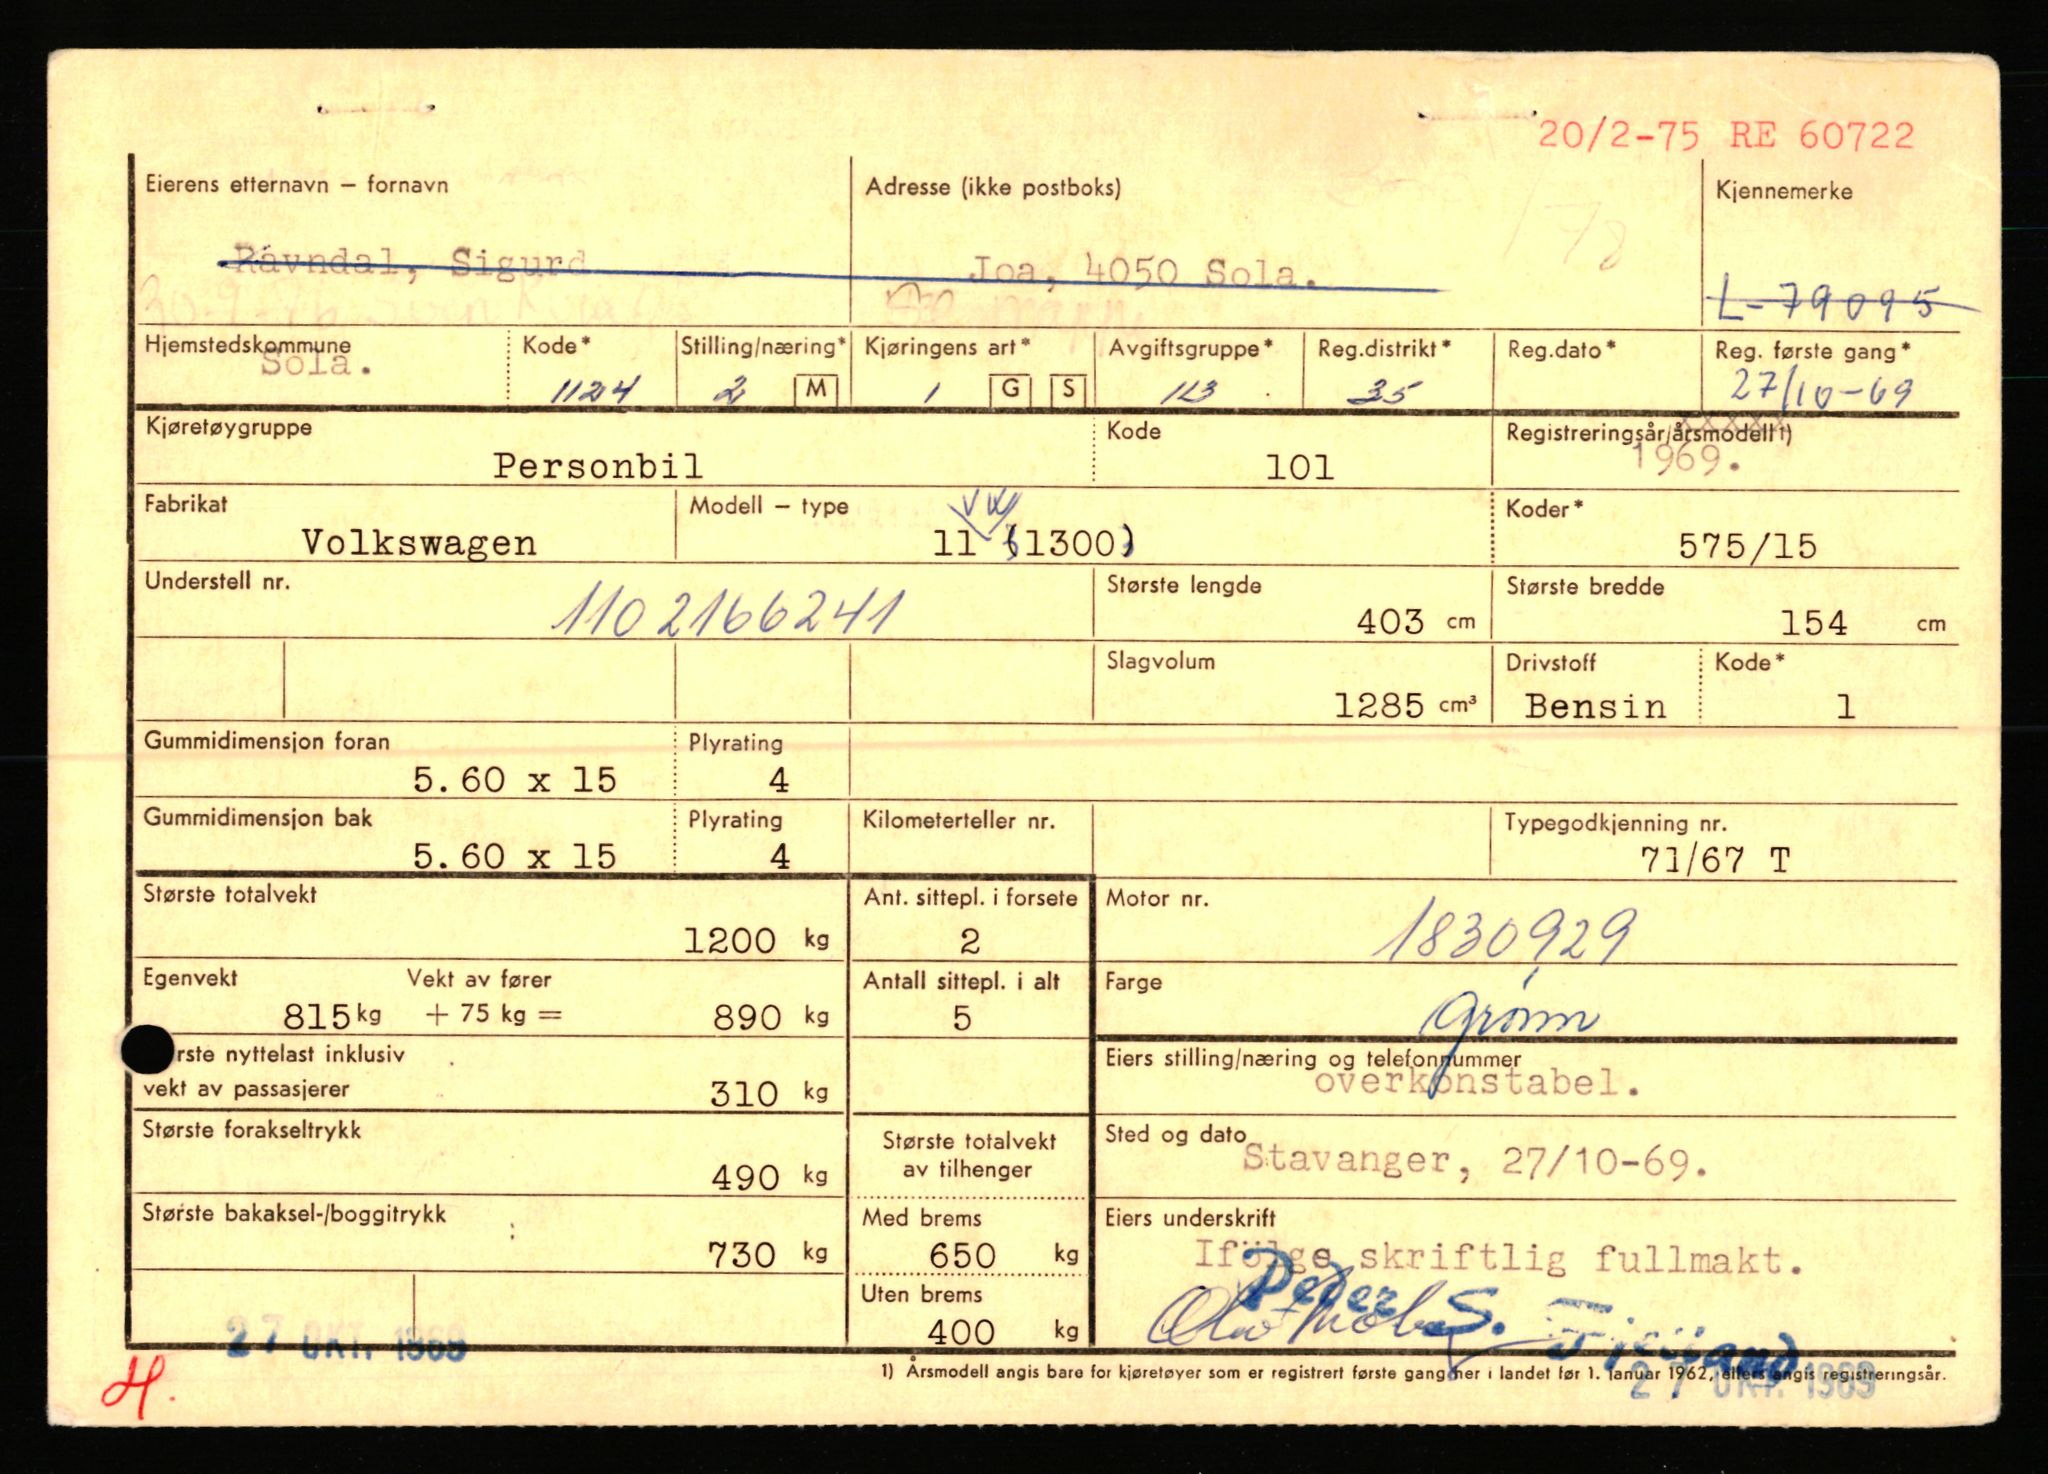 20/2-75 RE 60722
Eierens etternavn – fornavn Adresse (ikke postboks) Kjennemerke
178
Ravndal, Sigurd Joa, 4050 Sola. L-79095
30-9-76
Hjemstedskommune Kode* Stilling/næring* Kjøringens art* Avgiftsgruppe* Reg.distrikt* Reg.dato* Reg. første gang*
Sola. 1124 2 M 1 G S 113 35 27/10-69
Kjøretøygruppe Kode Registreringsår/årsmodell1)
Personbil 101 1969.
Fabrikat Modell – type Koder*
VW
Volkswagen 11 (1300) 575/15
Understell nr. Største lengde Største bredde
1102166241 403 cm 154 cm
Slagvolum Drivstoff Kode*
1285 cm³ Bensin 1
Gummidimensjon foran Plyrating
5.60 x 15 4
Gummidimensjon bak Plyrating Kilometerteller nr. Typegodkjenning nr.
5.60 x 15 4 71/67 T
Største totalvekt Ant. sittepl. i forsete Motor nr.
1200 kg 2 1830929
Egenvekt Vekt av fører Antall sittepl. i alt Farge
815 kg + 75 kg = 890 kg 5 Grønn
rste nyttelast inklusiv Eiers stilling/næring og telefonnummer
vekt av passasjerer 310 kg overkonstabel.
Største forakseltrykk Største totalvekt Sted og dato
av tilhenger Stavanger, 27/10-69.
490 kg
Største bakaksel-/boggitrykk Med brems Eiers underskrift
730 kg 650 kg Ifölge skriftlig fullmakt.
Uten brems Peder S.
400 kg
27 OKT. 1969
H. 1) Årsmodell angis bare for kjøretøyer som er registrert første gang her i landet før 1. januar 1962, ellers angis registreringsår.
27 OKT. 1969